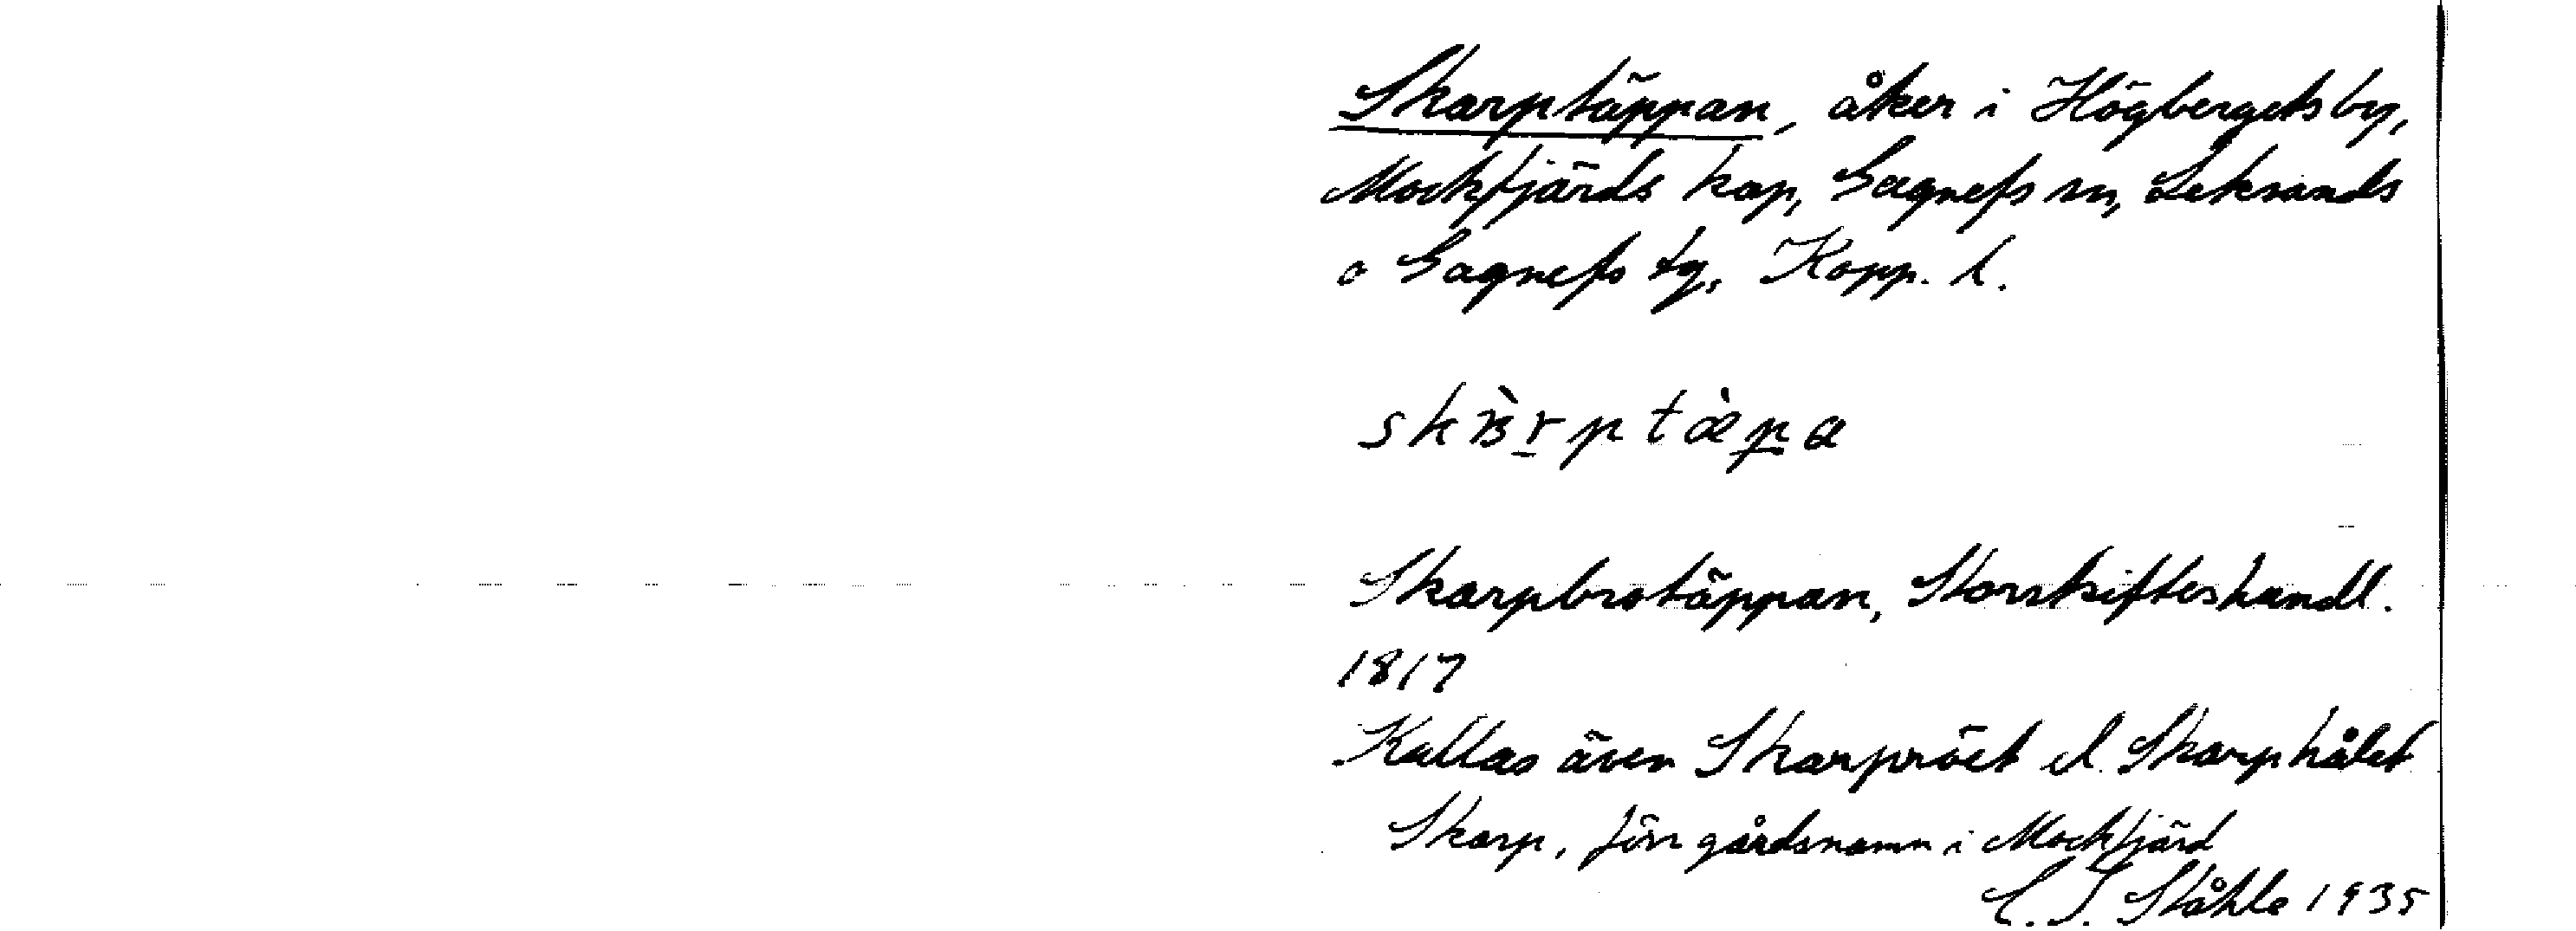 Skarptäppan, åker i Högbergets by,
Mockfjärds kap, Gagnefs sn, Leksands
o Gagnefs tg, Kopp. l.
skɐ̀r̠ptæ̀p̠a
Skarpbrotäppan, Storskifteshandl.
1817
Kallas även Skarpröet el. Skarphålet
Skarp, förr gårdsnamn i Mockfjärd
C. I. Ståhle 1935